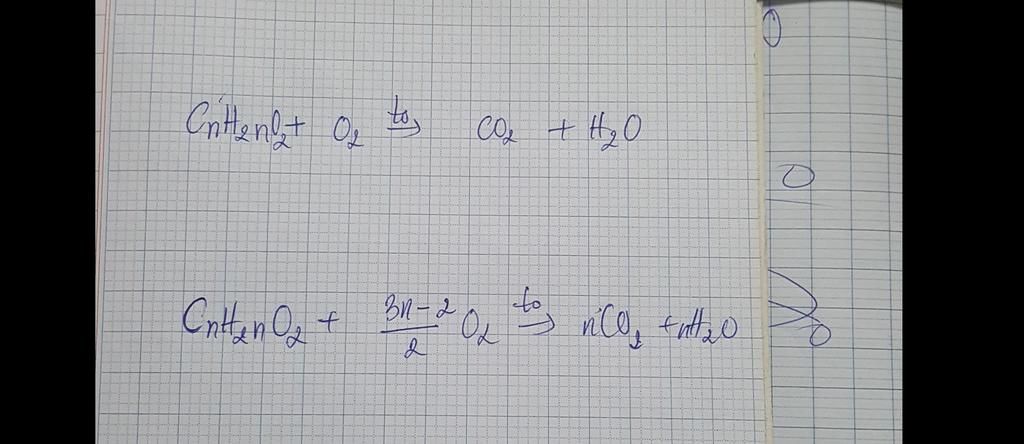 CnH2nO2 + O2 to→ CO2 + H2O
CnH2nO2 + 3n-2/2 O2 to→ nCO2 + nH2O